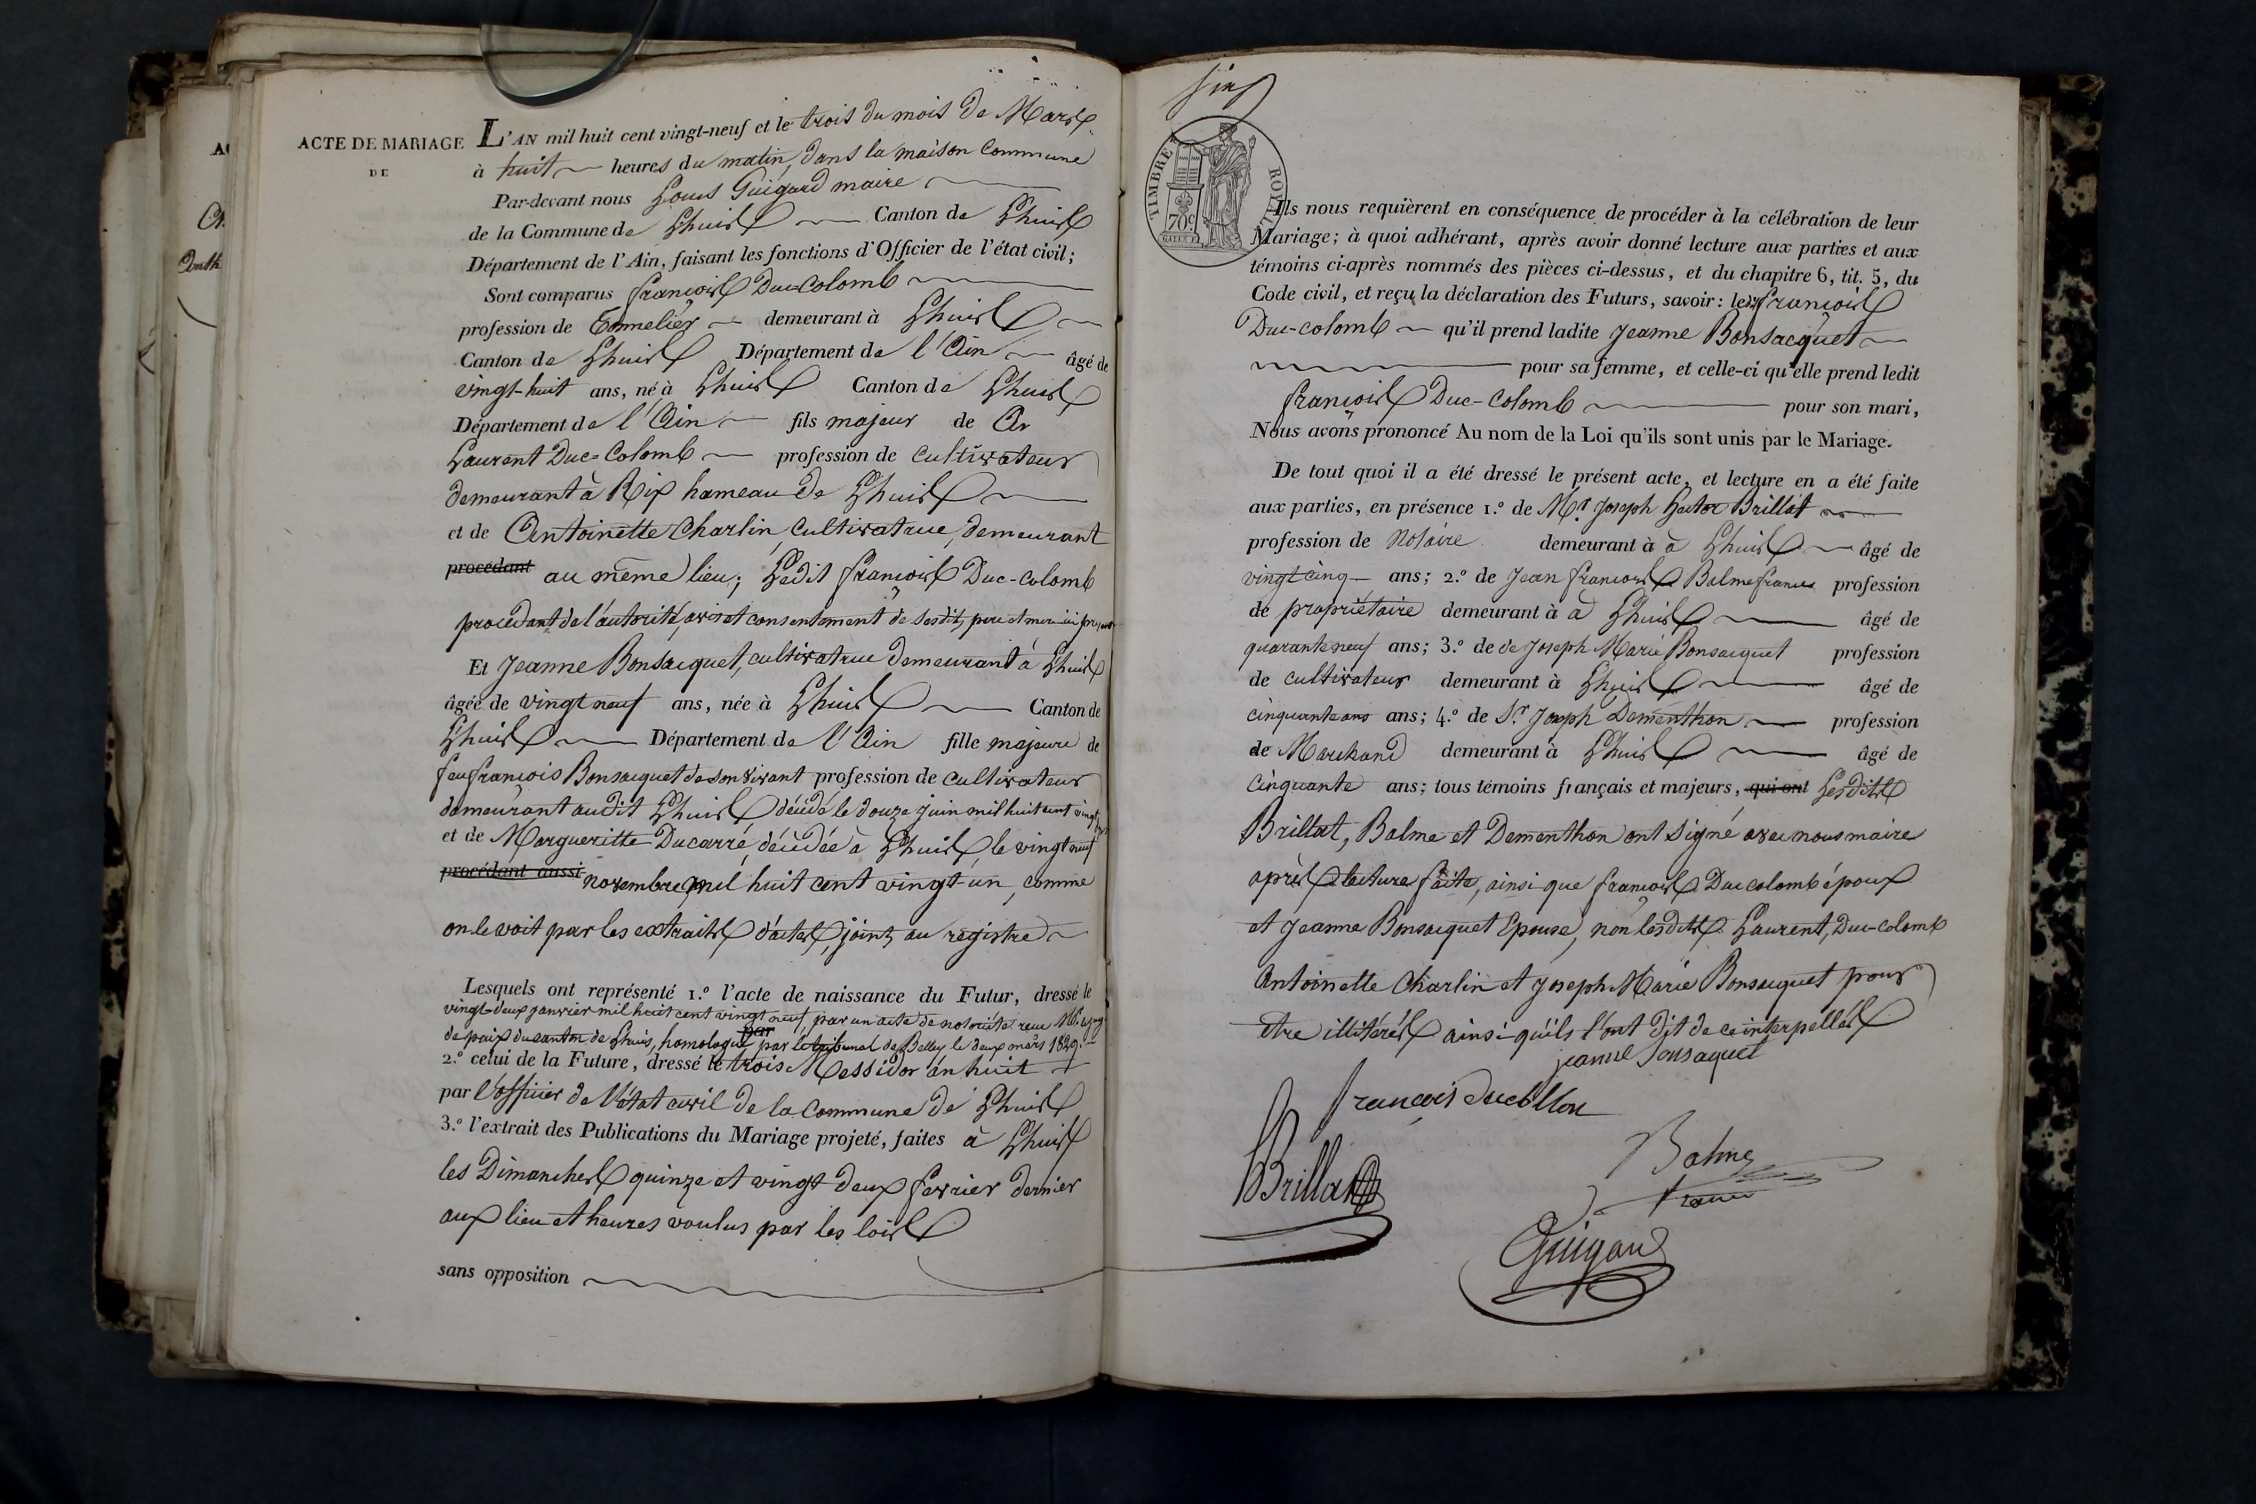 ACTE DE MARIAGE
DE
L'AN mil huit cent vingt-neuf et le trois du mois de Mars
à huit heures du matin, dans la maison Commune
Par-devant nous Louis Guigard maire
de la Commune de Lhuis Canton de Lhuis
Département de l'Ain, faisant les fonctions d'Officier de l'état civil;
Sont comparus françois Duc-Colomb
profession de demeurant à Lhuis
Canton de Lhuis Département de l'Ain âgé de
vingt-huit ans, né à Lhuis Canton de Lhuis
Département de l'Ain fils majeur de
Laurent Duc-Colomb profession de cultivateur
demeurant à Rix hameau de Lhuis
et de Antoinette Charlin, cultivatrice, demeurant
procédant au même lieu; Ledit françois Duc-Colomb
procédant de l'autorité, avis et consentement de sesdits père et mère ici présents
Et Jeanne Bonsacquet, cultivatrice demeurant à Lhuis
âgée de vingt neuf ans, née à Lhuis Canton de
Lhuis Département de l'Ain fille majeure de
feu françois Bonsacquet de son vivant profession de cultivateur
demeurant audit Lhuis décédé le douze juin mil huit cent vingt
et de Margueritte Ducarré, décédée à Lhuis le vingt neuf
procédant aussi novembre mil huit cent vingt-un, comme
on le voit par les extraits d'actes joints au registre
Lesquels ont représenté 1.º l'acte de naissance du Futur, dressé le
vingt-deux janvier mil huit cent vingt neuf, par un acte de notoriété reçu Mr. le juge
de paix du canton de Lhuis, homologué par le tribunal de Belley le deux mars 1829.
par
2.º celui de la Future, dressé le trois Messidor an huit
par l'officier de l'état civil de la Commune de Lhuis
3.º l'extrait des Publications du Mariage projeté, faites à Lhuis
les Dimanches quinze et vingt deux fevrier dernier
aux lieu et heures voulus par les lois
sans opposition
TIMBRE ROYAL
70c
Ils nous requièrent en conséquence de procéder à la célébration de leur
Mariage; à quoi adhérant, après avoir donné lecture aux parties et aux
témoins ci-après nommés des pièces ci-dessus, et du chapitre 6, tit. 5, du
Code civil, et reçu la déclaration des Futurs, savoir: led. françois
Duc-colomb qu'il prend ladite Jeanne Bonsacquet
pour sa femme, et celle-ci qu'elle prend ledit
françois Duc-Colomb pour son mari,
Nous avons prononcé Au nom de la Loi qu'ils sont unis par le Mariage.
De tout quoi il a été dressé le présent acte, et lecture en a été faite
aux parties, en présence 1.º de Mr Joseph Hector Brillat
profession de Notaire demeurant à à Lhuis âgé de
vingt cinq ans; 2.º de Jean françois Balme franc profession
de propriétaire demeurant à à Lhuis âgé de
quarante neuf ans; 3.º de de Joseph Marie Bonsacquet profession
de cultivateur demeurant à Lhuis âgé de
cinquante ans ans; 4.º de Sr Joseph Dementhon profession
de Marchand demeurant à Lhuis âgé de
cinquante ans; tous témoins français et majeurs, qui ont Lesdits
Brillat, Balme et Dementhon ont signé avec nous maire
après lecture faite, ainsi que françois Duc colomb époux
et Jeanne Bonsacquet Epouse, non lesdits Laurent, Duc-colomb
Antoinette Charlin et Joseph Marie Bonsacquet pour
etre illitérés ainsi qu'ils l'ont dit de ce interpellés
jeanne bonsaquet
francois
Brillat
Balme
franc
Guigard